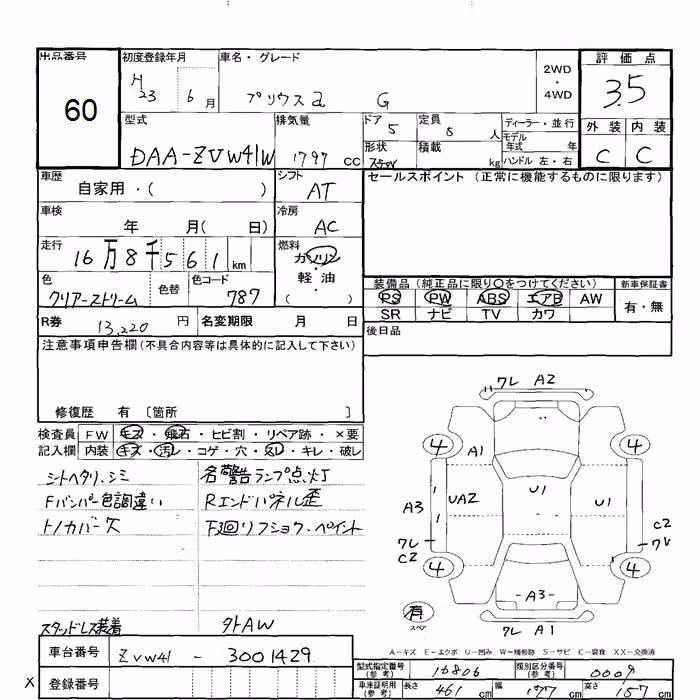 出品番号
60
初度登録年月
H
23 6 月
車名・グレード
プリウスα G
2WD
・
4WD
評価点
3.5
外装 内装
C C
型式
DAA-ZVW41W
排気量
1797 cc
ドア 5
定員 5 人
形状
積載 kg
ディーラー・並行
モデル
年式 年
ハンドル 左・右
車歴
自家用・( )
シフト
AT
セールスポイント (正常に機能するものに限ります)
車検
年 月( 日)
冷房
AC
走行
16万8千561 km
燃料
ガソリン
・
軽・油
( )
色
クリアーストリーム
色替
色コード
787
装備品 (純正品に限り○をつけてください)
PS PW ABS エアB AW
SR ナビ TV カワ
新車保証書
有・無
R券 13,220 円
名変期限 月 日
後日品
注意事項申告欄(不具合内容等は具体的に記入して下さい)
修復歴 有 〔箇所 〕
検査員 FW キズ・飛石・ヒビ割・リペア跡・×要
記入欄 内装 キズ・汚レ・コゲ・穴・スレ・キレ・破レ
シートヘタリ、シミ
各警告ランプ点灯
Fバンパー色調違い
Rエンドパネル歪
トノカバー欠
下廻りフショク・ペイント
スタッドレス装着
社外AW
ワレ A2
4 4
A1
A3 UA2 U1 U1
C2
ワレ ワレ
C2
4 4
A3
有
スペア
ワレ A1
A-キズ E-エクボ U-凹み W-補修跡 S-サビ C-腐食 XX-交換済
車台番号 ZVW41 - 3001429
X
登録番号
型式指定番号
(参考)
16806
類別区分番号
(参考)
0009
車庫証明用
(参考)
長さ 461 cm 幅 177 cm 高さ 157 cm